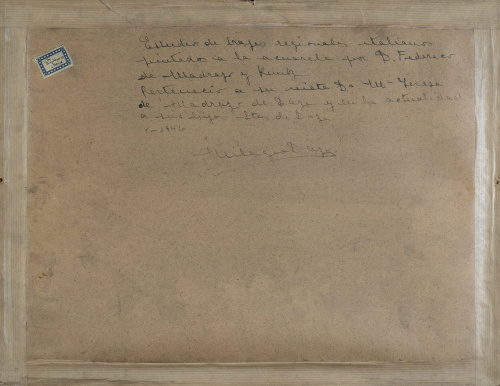 Estudios de trajes regionales italianos
pintados a la acuarela por D. Federico
de Madrazo y Kuntz
Perteneció a su nieta Da Ma Teresa
de Madrazo de Daza y en la actualidad
a sus hijos. Stas. de Daza